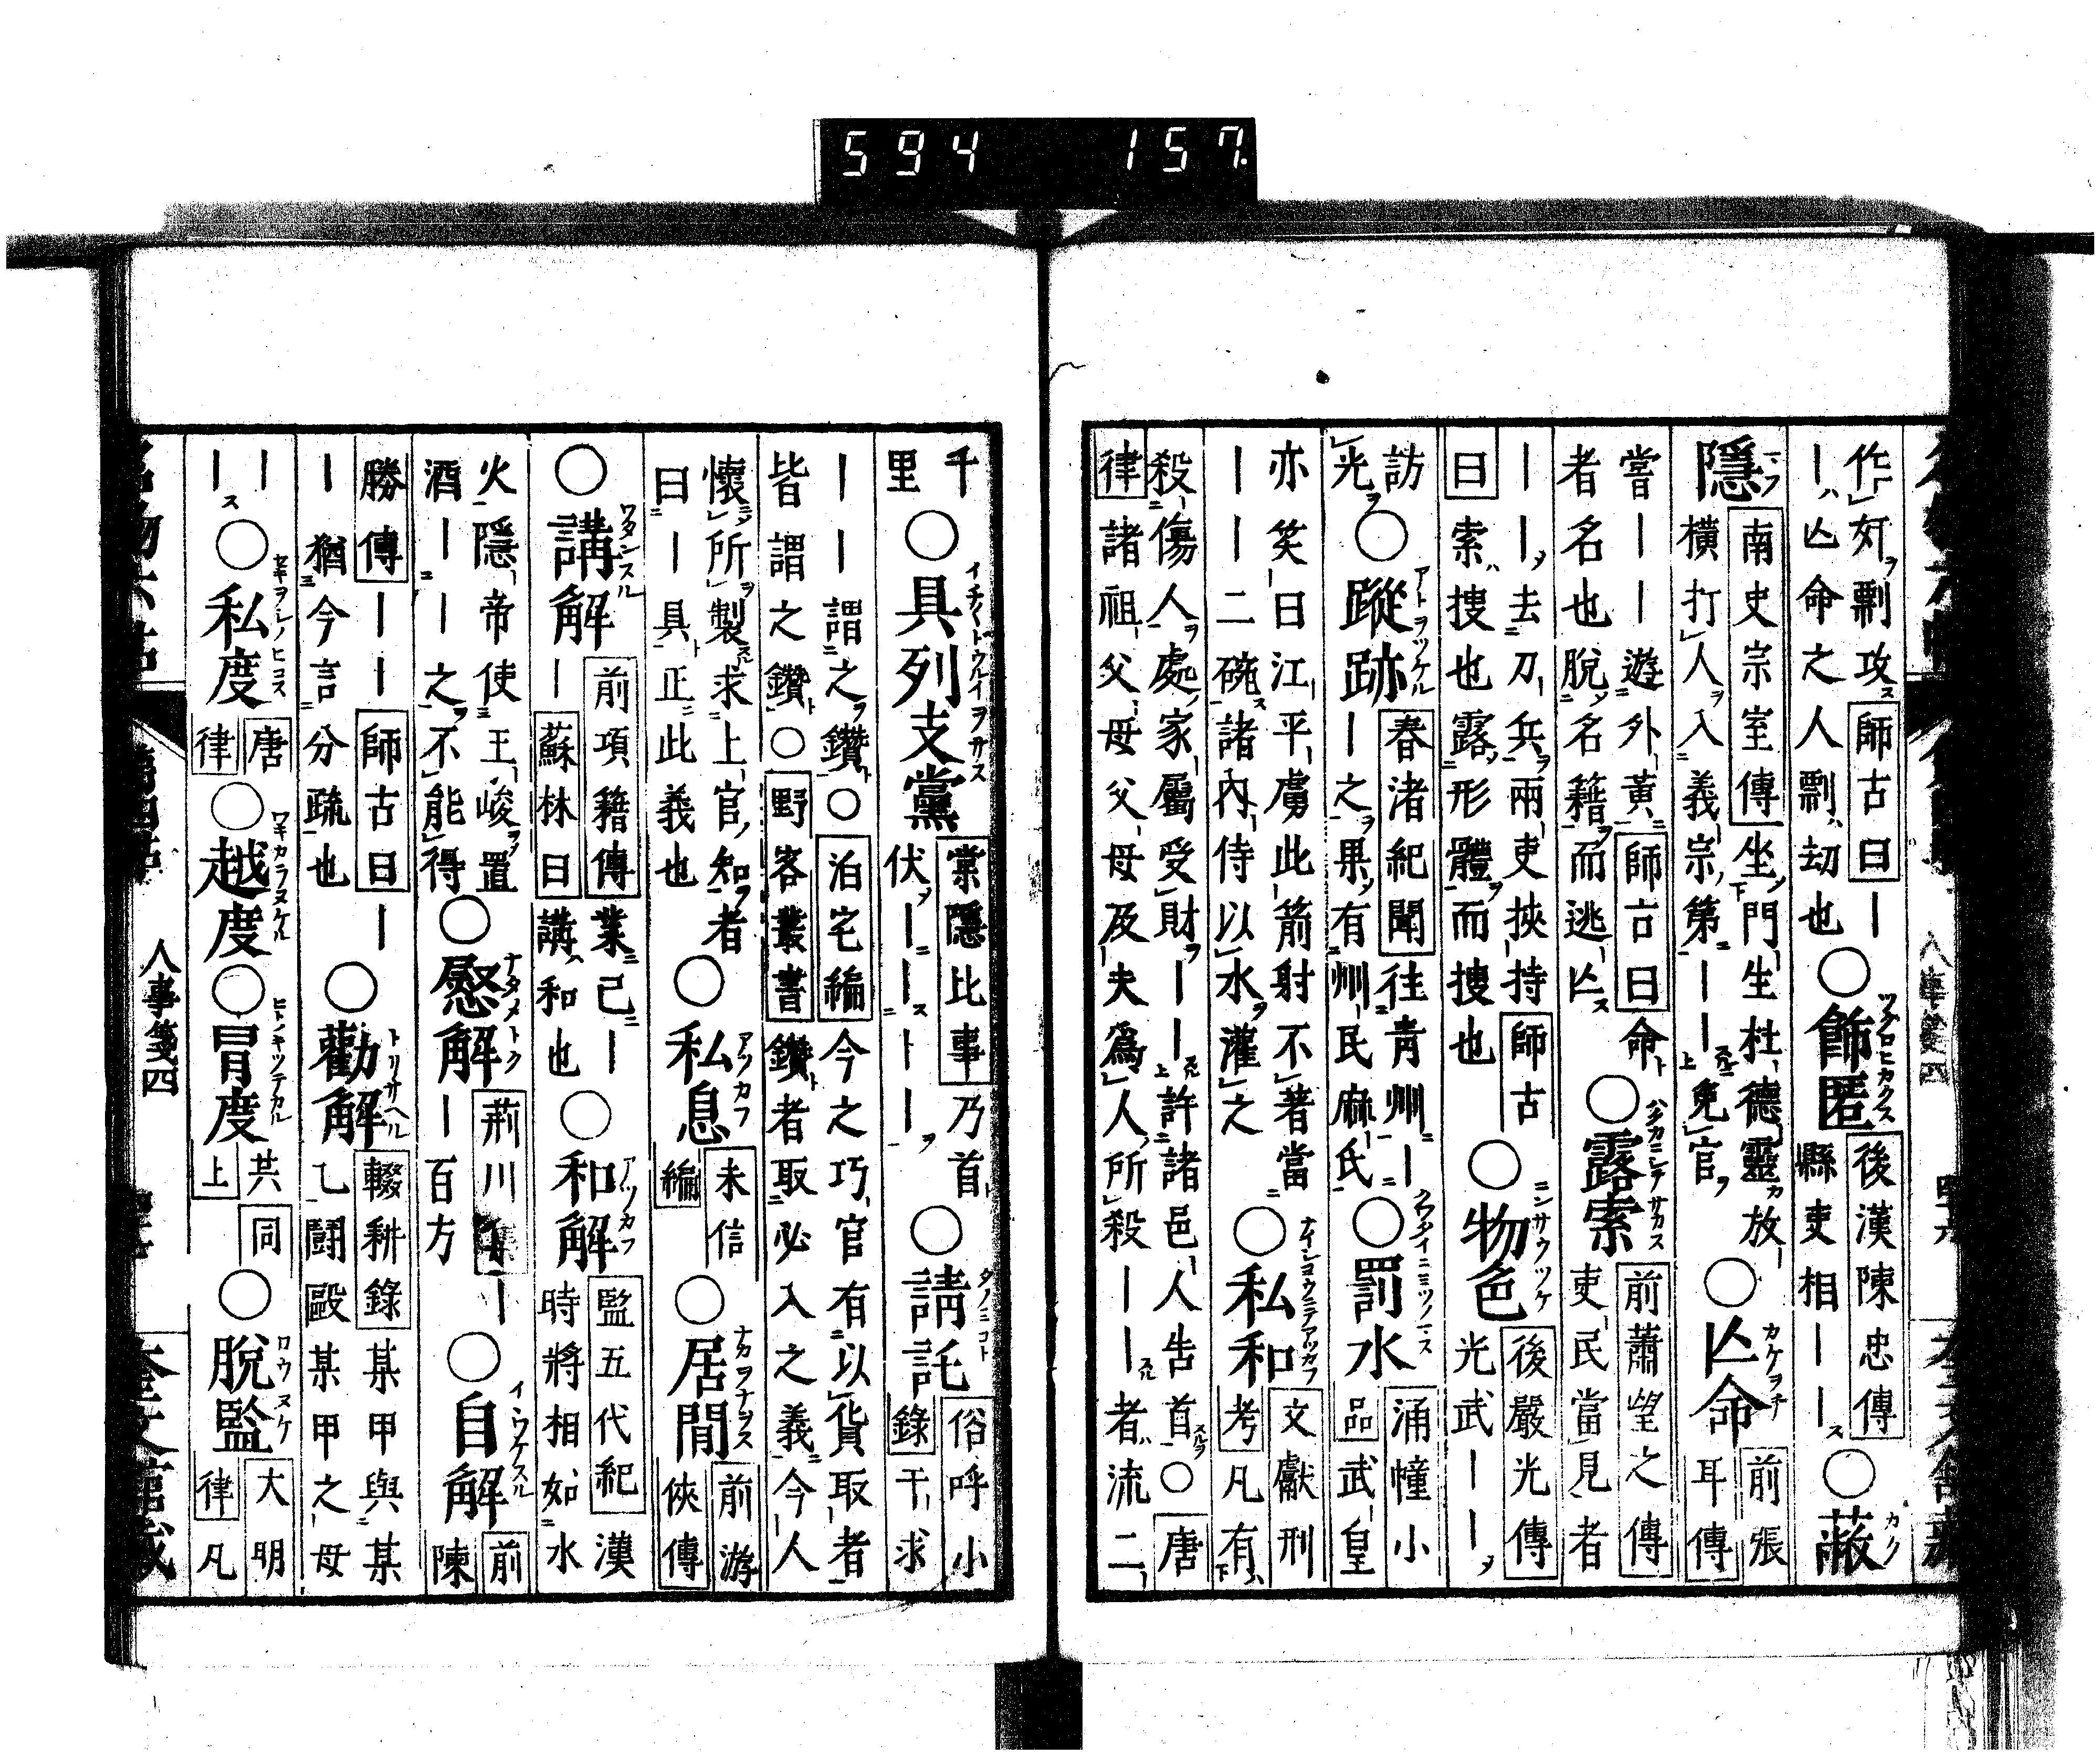 594 157
作奸剽攻師古曰｜
｜亾命之人剽劫也○飾匿後漢陳忠傳縣吏相｜｜○蔽
隱南史宗室傳坐門生杜德靈放
橫打人入義宗第｜｜免官○亾命前張耳傳
嘗｜｜遊外黃師古曰命
者名也脫名籍而逃亾○露索前蕭望之傳吏民當見者
｜｜去刀兵兩吏挾持師古
曰索搜也露形體而搜也○物色後嚴光傳光武｜｜
訪光○蹤跡春渚紀聞往青州｜
｜之果有州民麻氏○罰水涌幢小品武皇
亦笑曰江平虜此箭射不著當
｜｜二碗諸內侍以水灌之○私和文獻刑考凡有
殺傷人處家屬受財｜｜許諸邑人告首○唐
律諸祖父母父母及夫爲人所殺｜｜者流二
千里○具列支黨棠隱比事乃首
伏｜｜｜｜○請託俗呼小錄干求
｜｜謂之鑽○泊宅編今之巧官有以貨取者
皆謂之鑽○野客叢書鑽者取必入之義今人
懷所製求上官知者
曰｜具正此義也○私息未信編○居間前游俠傳
○講解前項籍傳業已｜
｜蘇林曰講和也○和解監五代紀漢時將相如水
火隱帝使王峻置
酒｜｜之不能得○慰解荊川集｜｜百方○自解前陳
勝傳｜｜師古曰｜
｜猶今言分疏也○勸解輟耕錄某甲與某乙鬪毆某甲之母
｜｜○私度唐律○越度○冒度共同上○脫監大明律凡
人事箋四